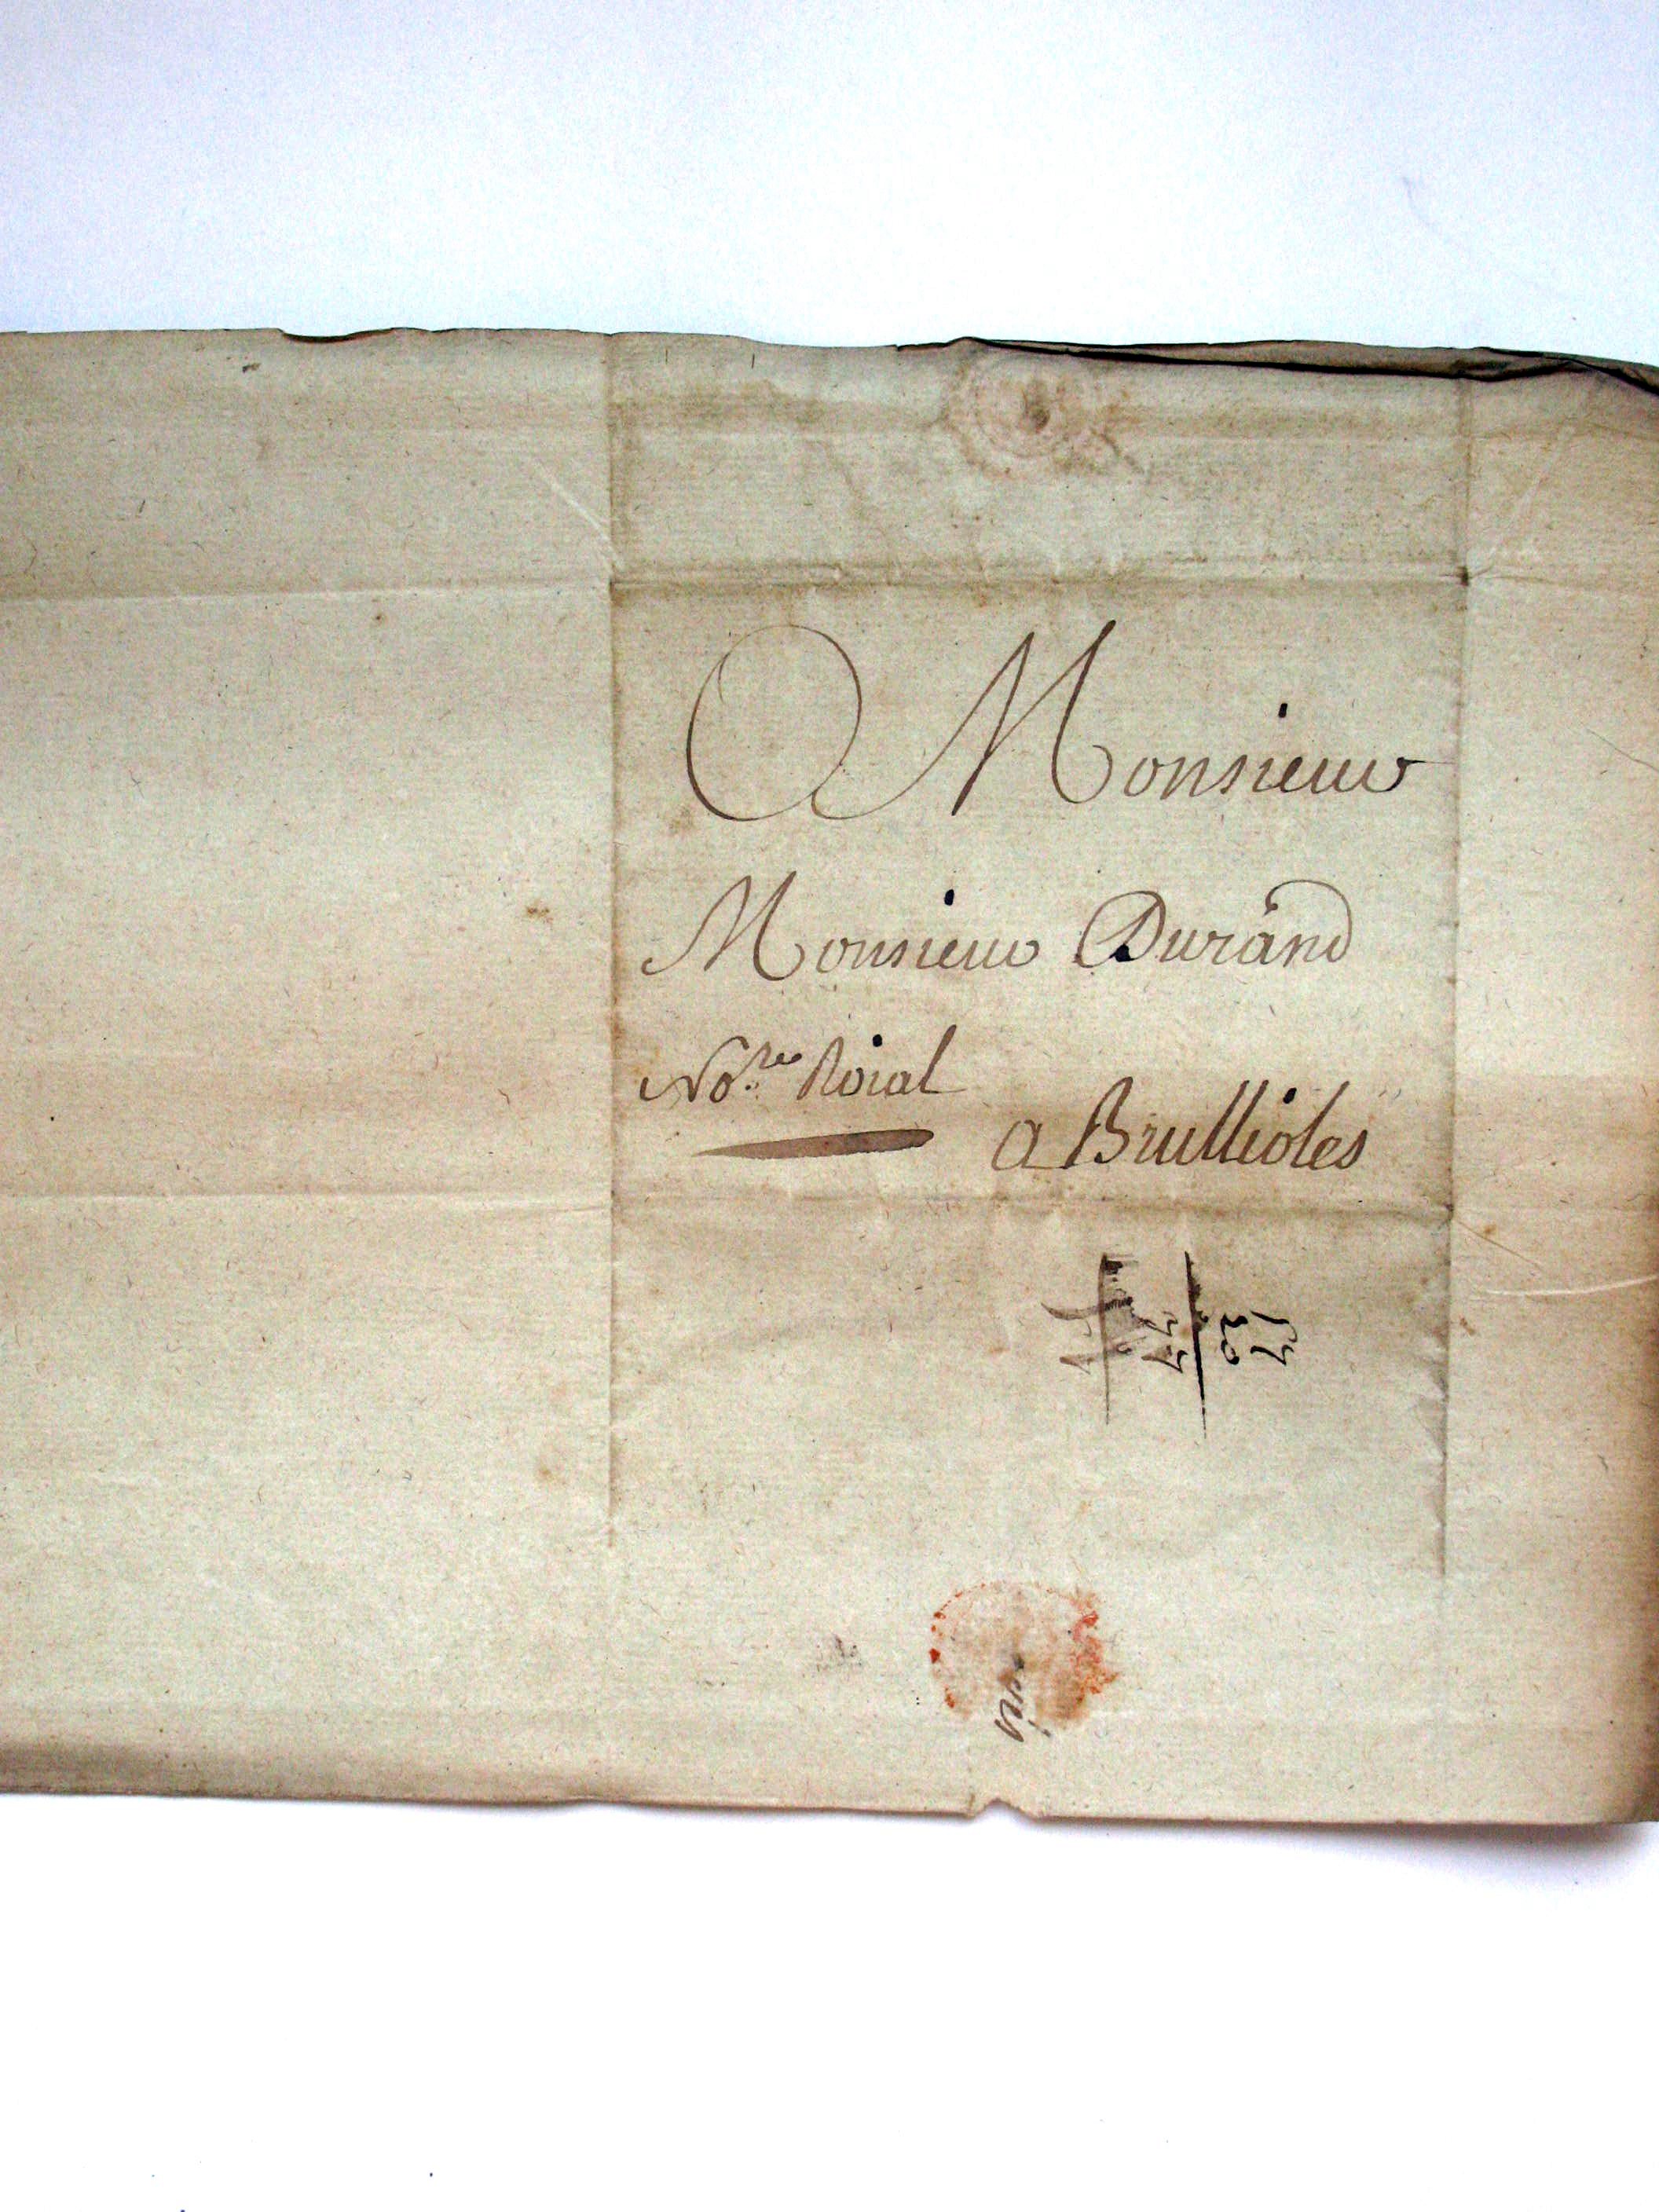 Monsieur
Monsieur Durand
No.re Roial
a Brullioles
57
20
77